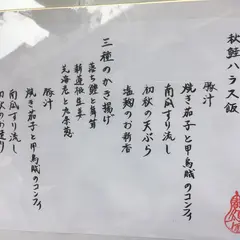 秋鮭ハラス飯
豚汁
焼き茄子と甲烏賊のコンフィ
南瓜すり流し
初秋の天ぷら
塩麹のお新香
三種のかき揚げ
落ち鱧と舞茸
新蓮根生姜
芝海老と九条葱
豚汁
焼き茄子と甲烏賊のコンフィ
南瓜すり流し
初秋のお造り